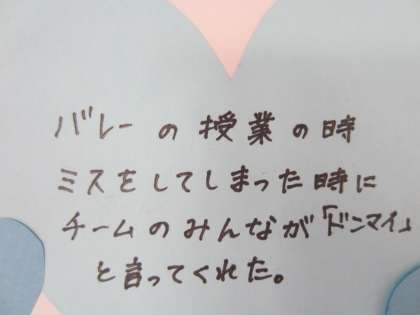 バレーの授業の時
ミスをしてしまった時に
チームのみんなが「ドンマイ」
と言ってくれた。